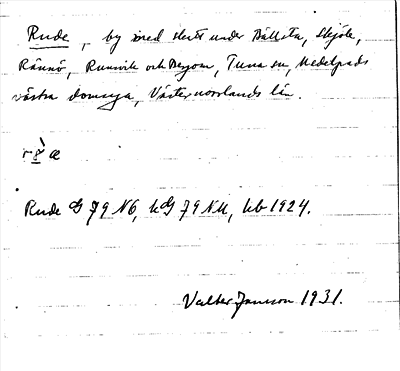 Rude, by med skott under Dällsta, Skjöle,
Rännö, Runnvik och Bergom, Tuna sn, Medelpads
västra domsaga, Västernorrlands län.
Rude G 79 NG, kG 79 NM, kb 1924.
Valter Jansson 1931.